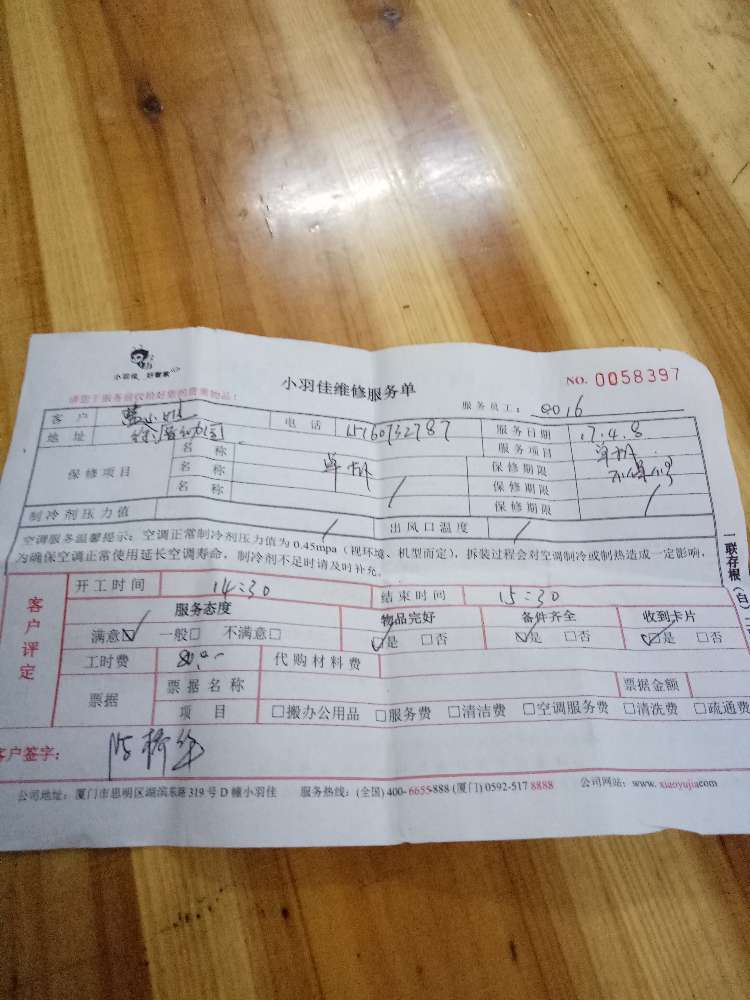 小羽佳 好管家
小羽佳维修服务单
NO. 0058397
请您于服务前收检好您的贵重物品!
服务员工: 9016
客 户
电 话 15160732787 服务日期 17.4.8
地 址
服务项目 单材
保修项目
名 称 单材 保修期限 不保
名 称 / 保修期限
名 称 保修期限 /
制冷剂压力值 / 出风口温度 /
空调服务温馨提示: 空调正常制冷剂压力值为 0.45mpa (视环境、机型而定), 拆装过程会对空调制冷或制热造成一定影响,
为确保空调正常使用延长空调寿命, 制冷剂不足时请及时补充。
一联存根 (白)
客户评定
开工时间 14:30 结束时间 15:30
服务态度 物品完好 备件齐全 收到卡片
满意☑ 一般□ 不满意□ ☑是 □否 ☑是 □否 ☑是 □否
工时费 80 代购材料费
票据 票据名称 票据金额
项 目 □搬办公用品 □服务费 □清洁费 □空调服务费 □清洗费 □疏通费
客户签字:
公司地址: 厦门市思明区湖滨东路 319 号 D 幢小羽佳 服务热线: (全国) 400-6655-888 (厦门) 0592-517 8888 公司网站: www. xiaoyujia.com